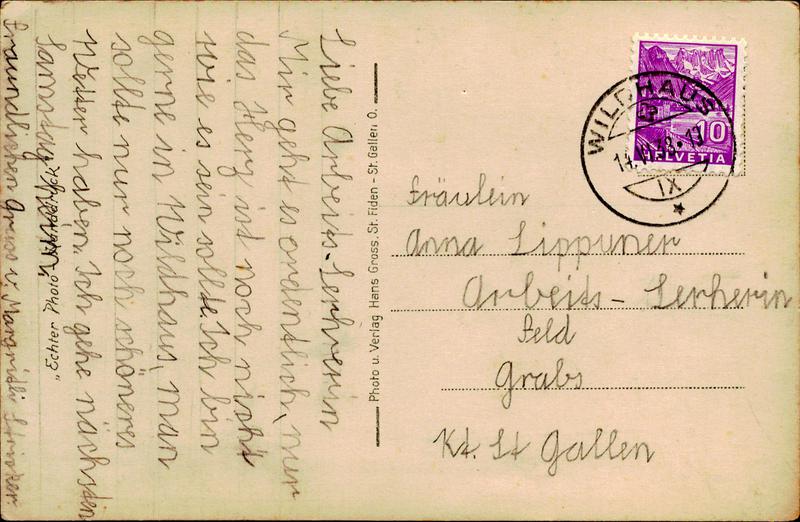 Liebe Arbeits-Lehrerin
Mir geht es ordentlich, nur
das Herz ist noch nicht
wie es sein sollte. Ich bin
gerne in Wildhaus, man
sollte nur noch schöneres
Wetter haben. Ich gehe nächsten
Samstag
Freundlichen Gruss v. Margrith
"Echter Photo
Photo u. Verlag Hans Gross, St. Fiden - St. Gallen O.
WILDHAUS
IX
10
HELVETIA
Fräulein
Anna Lippuner
Arbeits-Lerherin
Feld
Grabs
Kt. St Gallen